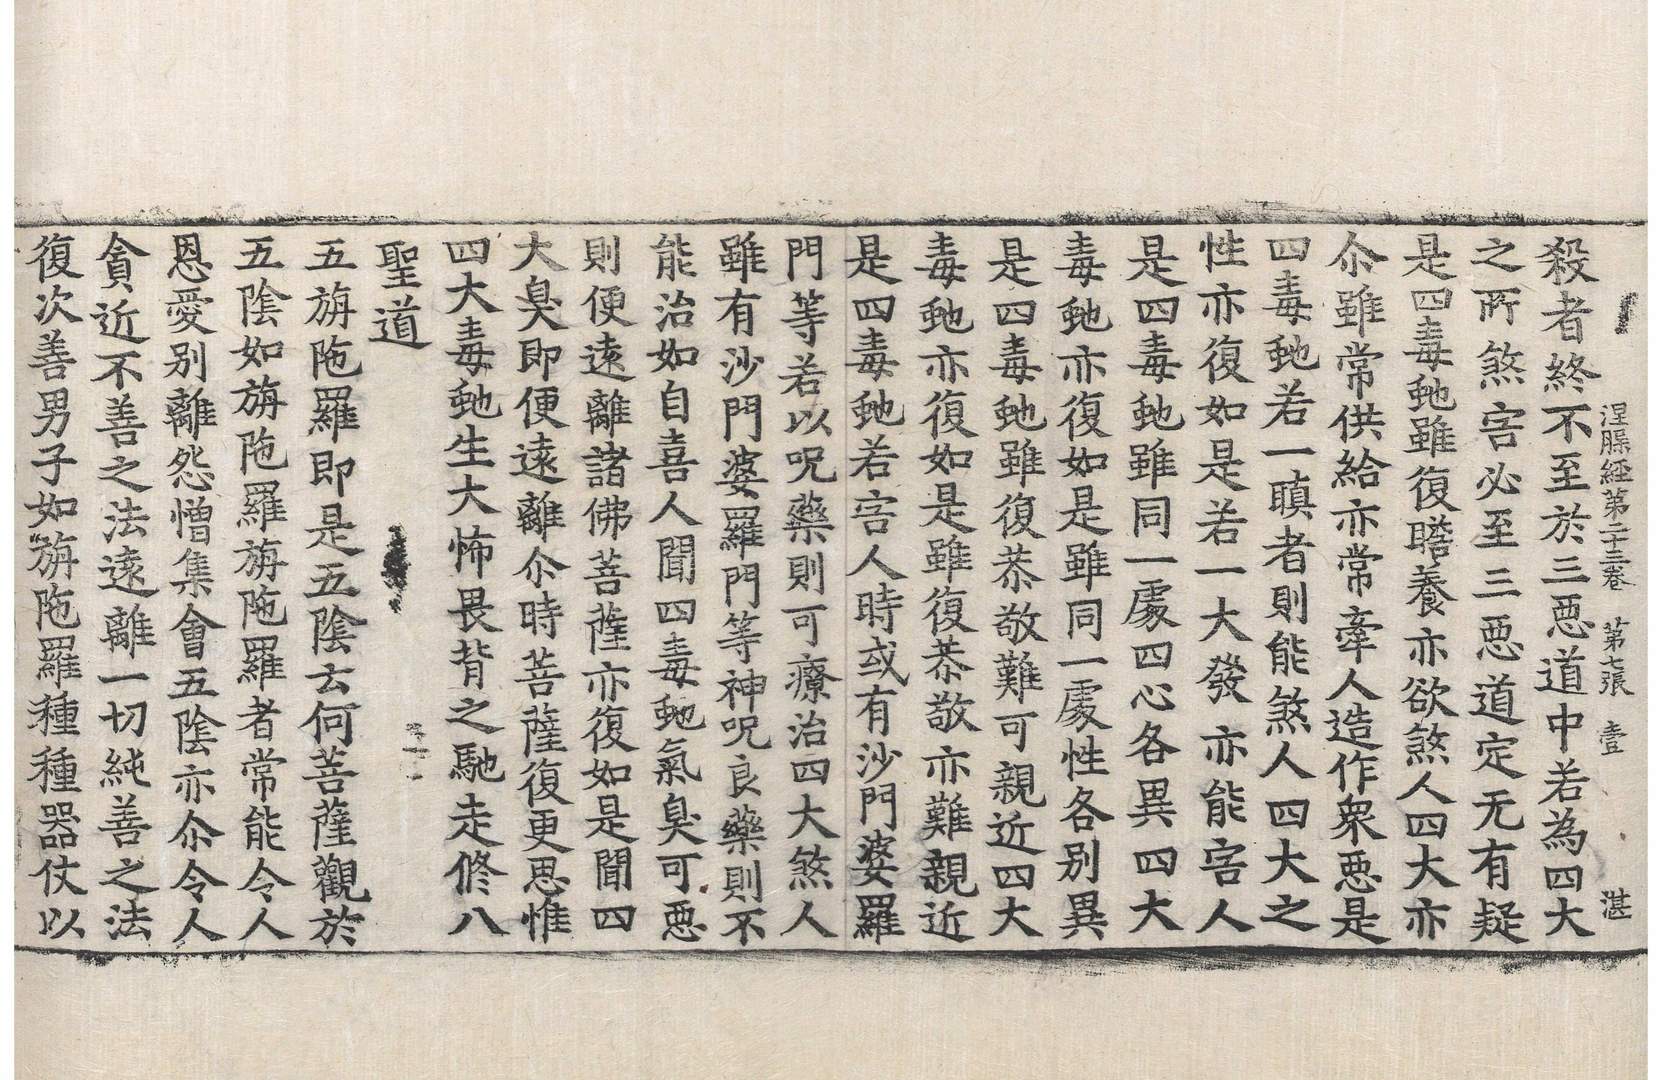 涅槃經第二十三卷 第七張 壹 湛
殺者終不至於三惡道中若為四大
之所煞害必至三惡道定无有疑
是四毒虵雖復瞻養亦欲煞人四大亦
尒雖常供給亦常牽人造作衆惡是
四毒虵若一瞋者則能煞人四大之
性亦復如是若一大發亦能害人
是四毒虵雖同一處四心各異四大
毒虵亦復如是雖同一處性各别異
是四毒虵雖復恭敬難可親近四大
毒虵亦復如是雖復恭敬亦難親近
是四毒虵若害人時或有沙門婆羅
門等若以呪藥則可療治四大煞人
雖有沙門婆羅門等神呪良藥則不
能治如自喜人聞四毒虵氣臭可惡
則便遠離諸佛菩薩亦復如是聞四
大臭即便遠離尒時菩薩復更思惟
四大毒虵生大怖畏背之馳走修八
聖道
五旃陁羅即是五陰云何菩薩觀於
五陰如旃陁羅旃陁羅者常能令人
恩愛别離怨憎集會五陰亦尒令人
貪近不善之法遠離一切純善之法
復次善男子如旃陁羅種種器仗以